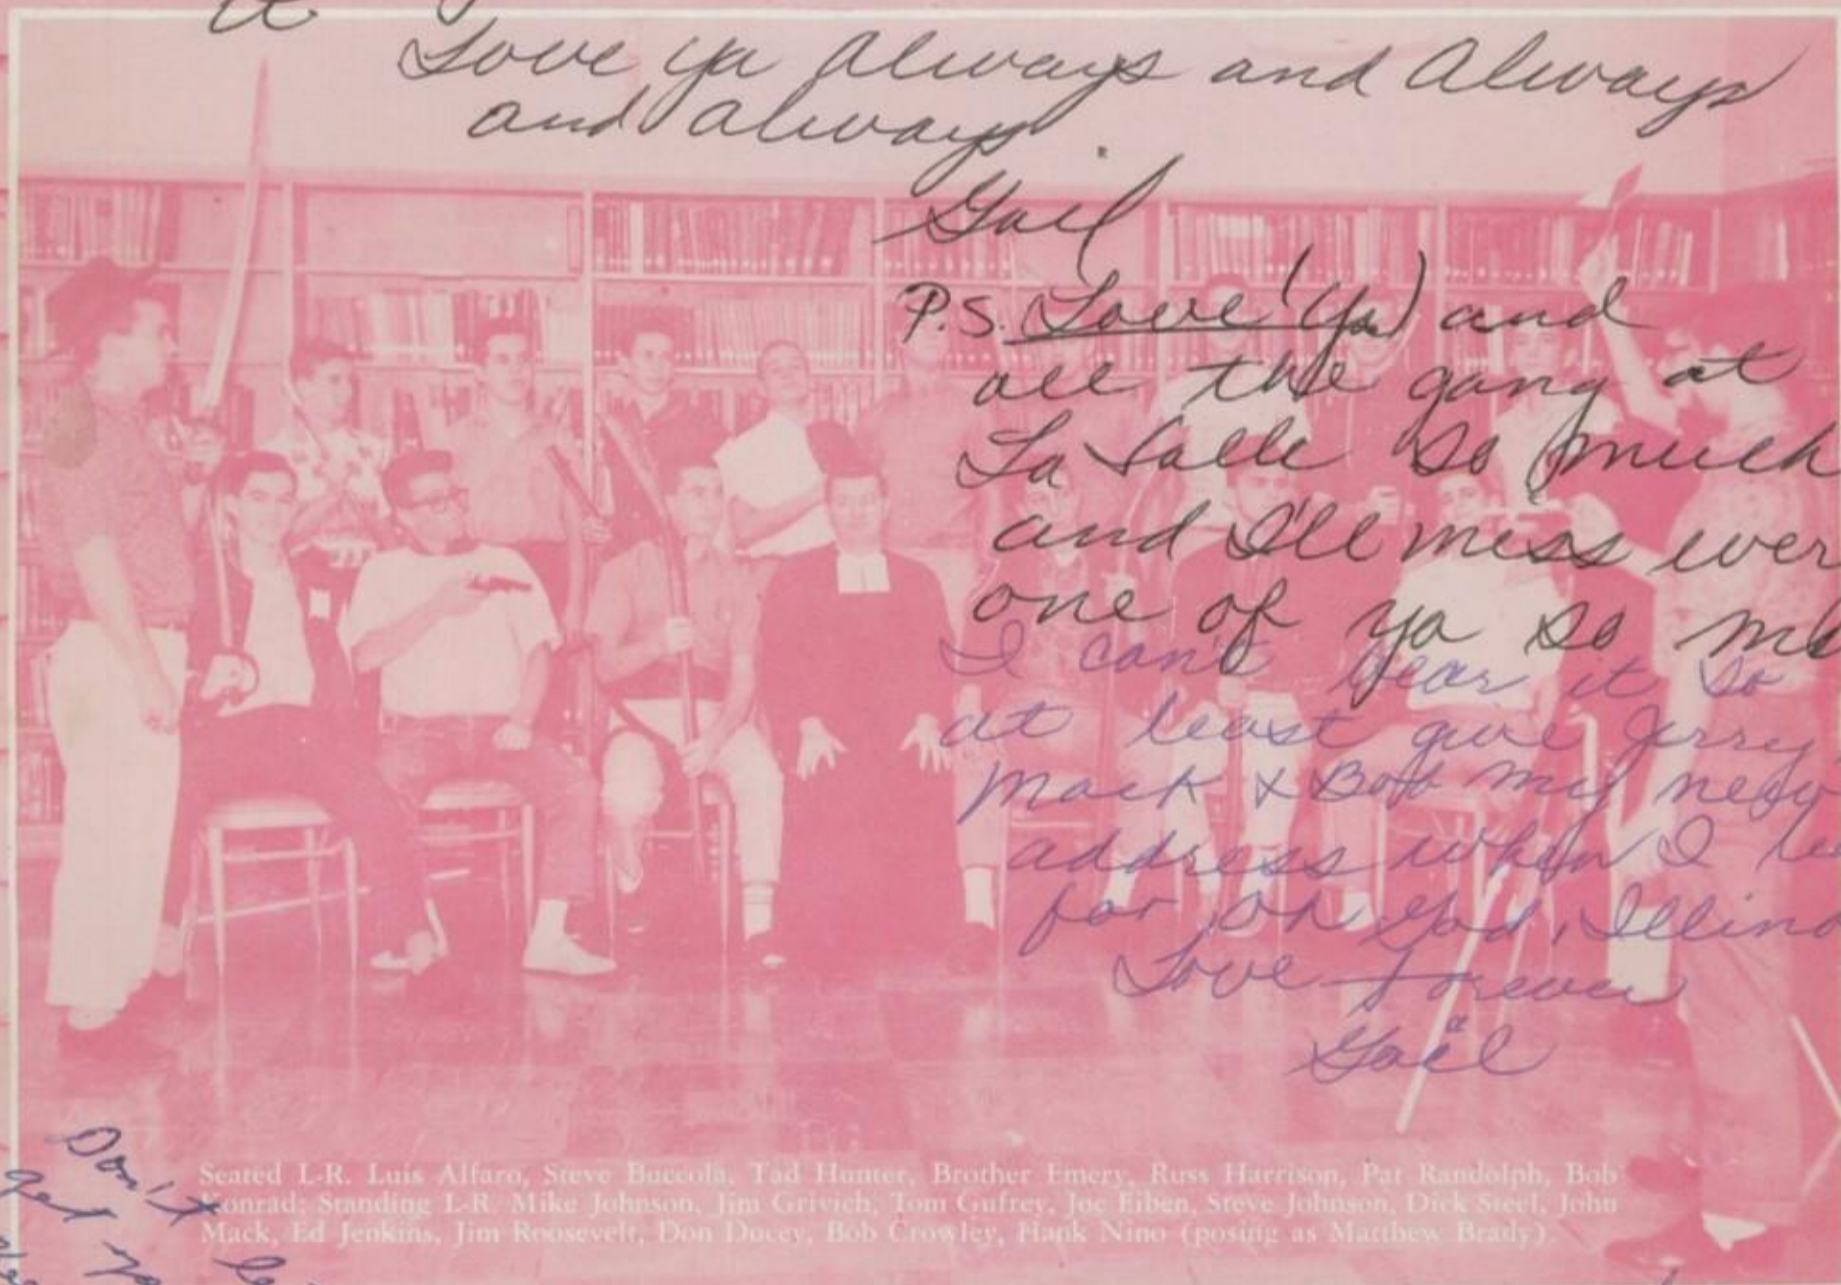 it
Love ya Always and Always
and Always
Gail
P.S. Love (Ya) and
all the gang at
La Salle so much
and I'll miss ever
one of ya so mu
I can't bear it so
at least give Jerry
Mack & Bob my new
address when I le
for, oh God, Illino
Love forever
Gail
Don't
get
Seated L-R. Luis Alfaro, Steve Buccola, Tad Hunter, Brother Emery, Russ Harrison, Pat Randolph, Bob
Konrad; Standing L-R. Mike Johnson, Jim Grivich, Tom Gufrey, Joe Eiben, Steve Johnson, Dick Steel, John
Mack, Ed Jenkins, Jim Roosevelt, Don Ducey, Bob Crowley, Hank Nino (posing as Matthew Brady).